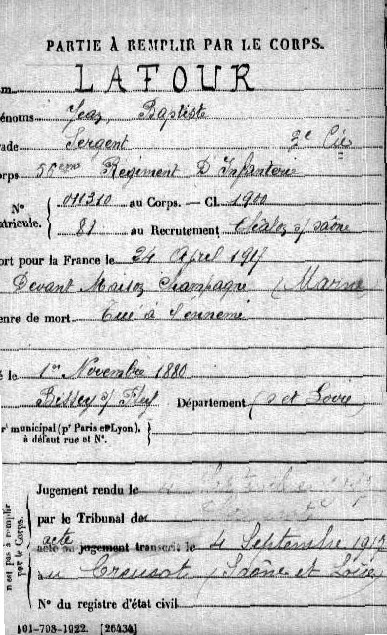 PARTIE À REMPLIR PAR LE CORPS.
om LAFOUR
énoms Jean Baptiste
ade Sergent 2e Cie
orps 56eme Régiment D'Infanterie
N° 011310 au Corps. — Cl. 1900
atricule. 81 au Recrutement Chalon s/ Saône
ort pour la France le 24 Avril 1917
Devant Maison Champagne (Marne)
enre de mort Tué à l'ennemi
é le 1er Novembre 1880
Bissey s/ Département S et Loire
r' municipal (pr Paris et Lyon),
à défaut rue et N°.
n'est pas à remplir
par le Corps.
Jugement rendu le
par le Tribunal de
acte
acte ou jugement transcrit le 4 Septembre 1917
au Creusot (Saône et Loire)
N° du registre d'état civil
101-708-1922. [26434]